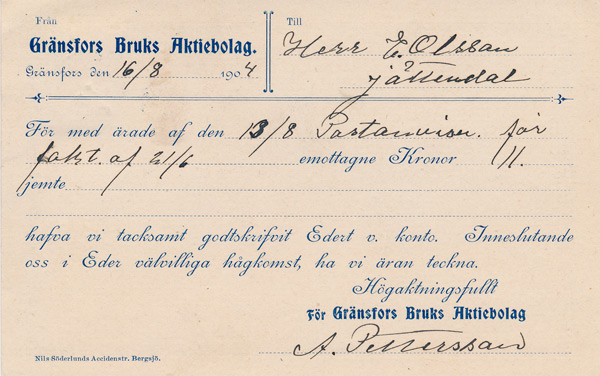 Från
Gränsfors Bruks Aktiebolag.
Gränsfors den 16/8 1904
Till
Herr E. Olssan
Jättendal
För med ärade af den 13/8 Postanvisn. för
fakt. af 21/6 emottagne Kronor 11.
jemte
hafva vi tacksamt godtskrifvit Edert v. konto. Inneslutande
oss i Eder välvilliga hågkomst, ha vi äran teckna.
Högaktningsfullt
För Gränsfors Bruks Aktiebolag
A. Pettersson
Nils Söderlunds Accidenstr. Bergsjö.